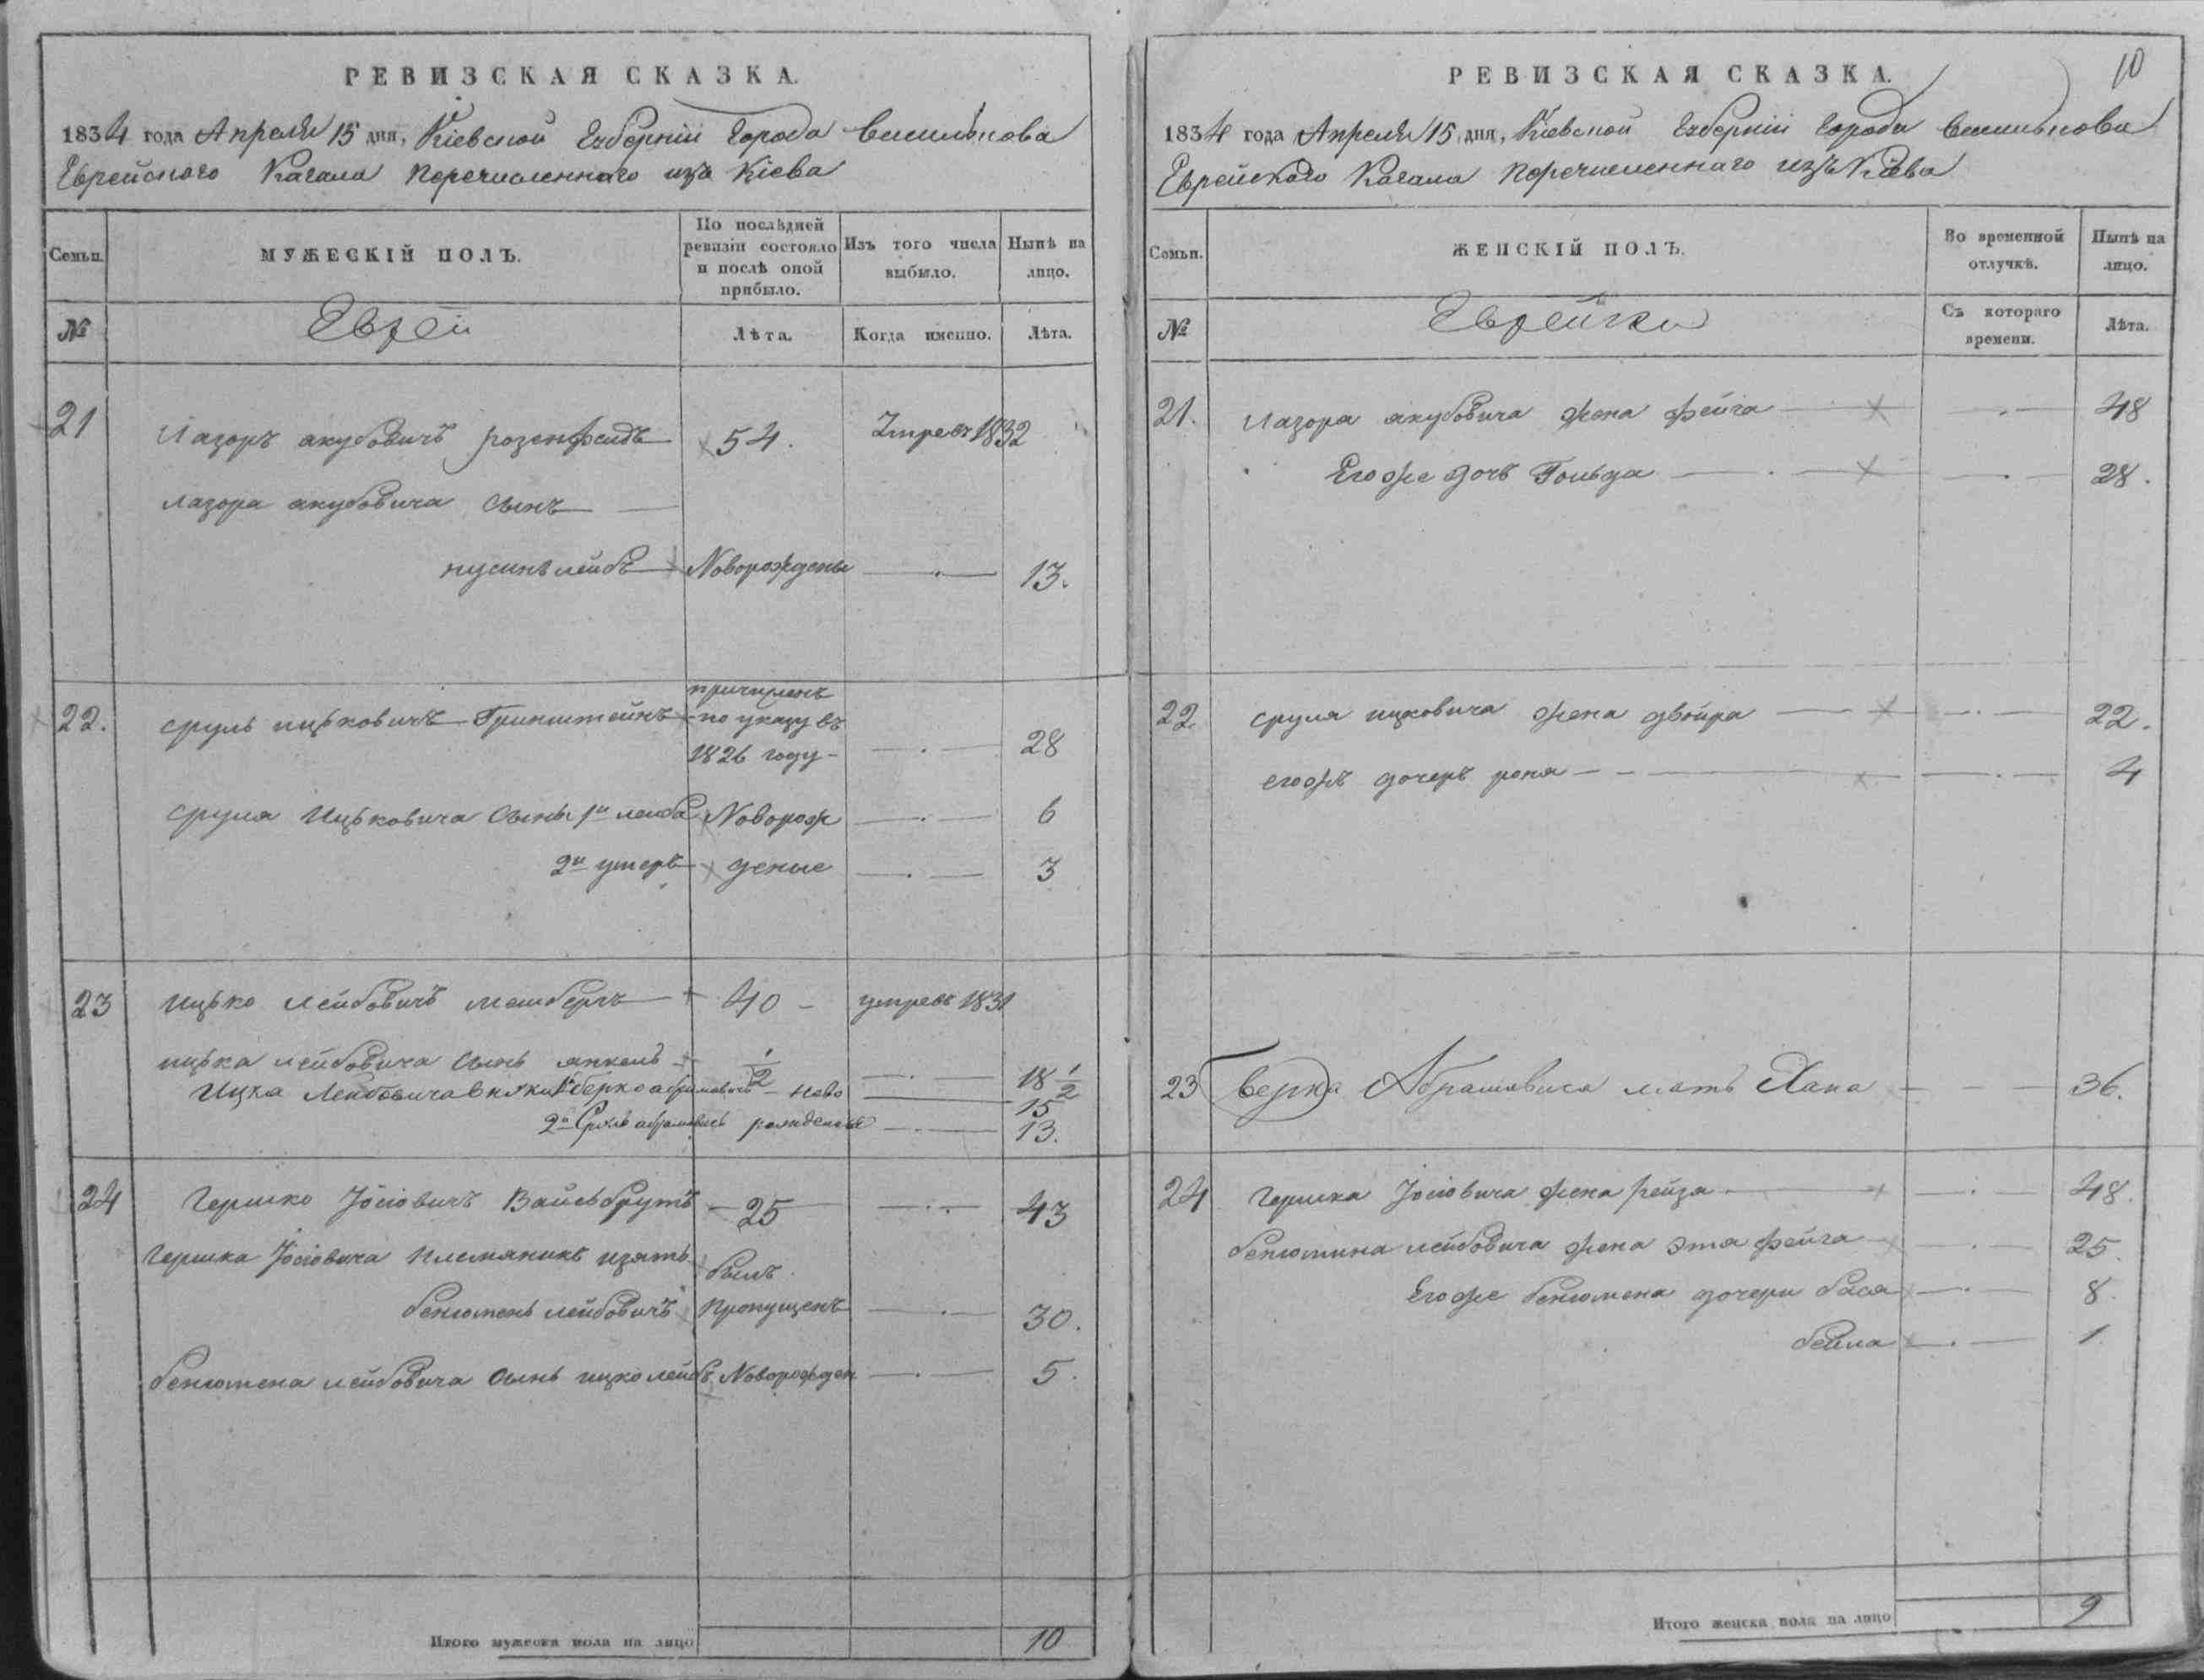 РЕВИЗСКАЯ СКАЗКА.
1834 года Апреля 15 дня, Кіевской Губерніи Города Василькова
Еврейского Кагала перечисленнаго изъ Кіева
Семьи.
МУЖЕСКІЙ ПОЛЪ.
По послѣдней ревизіи состояло и послѣ оной прибыло.
Изъ того числа выбыло.
Нынѣ на лицо.
№
Евреи
Лѣта.
Когда именно.
Лѣта.
21
Лазоръ якубовичъ розенфелдъ 54. Умре въ 1832
лазора якубовича сынъ
нусинъ лейбъ Новорождены 13.
22.
сруль ицковичъ Гринштейнъ
причисленъ
по указу въ
1826 году 28
сруля Ицьковича сыны 1й лейба Новорож 6
2й ушеръ деные 3
23
ицько лейбовичъ 40 умре въ 1831
ицька лейбовича сынъ янкель ½ 18 ½
Ицка Лейбовича внуки 1й берко абрамовичъ ново 15
2й Сруль абрамовичь рожденые 13.
24
Гершко Іосіовичъ Вайсьбрутъ 25 43
Гершка Іосіовича племяникъ изять
бенюменъ лейбовичъ
былъ
пропущенъ 30.
бенюмена лейбовича сынъ ицко лейбъ Новорожден 5.
Итого мужеска пола на лицо 10
10
РЕВИЗСКАЯ СКАЗКА.
1834 года Апреля 15 дня, Кіевской Губерніи Города Василькова
Еврейского Кагала перечисленнаго изъ Кіева
Семьи.
ЖЕНСКІЙ ПОЛЪ.
Во временной отлучкѣ.
Нынѣ на лицо.
№
Еврейки
Съ котораго времени.
Лѣта.
21.
Лазора якубовича жена фейга 48
Егоже дочь Гольда 28.
22.
сруля ицковича жена двойра 22.
егожъ дочерь 4
23
Берка Абрамовича мать Хана 36.
24
Гершка Іосіовича жена рейза 48.
бенюмина лейбовича жена эта фейга 25.
Егоже бенюмена дочери бася 8.
бейла 1
Итого женска пола на лицо 9